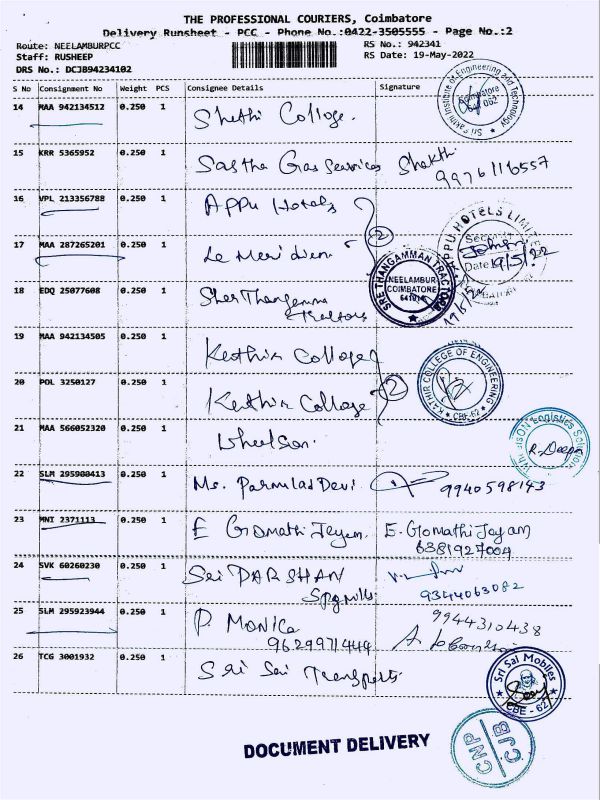 THE PROFESSIONAL COURIERS, Coimbatore
Delivery Runsheet - PCC - Phone No.:0422-3505555 - Page No.:2
Route: NEELAMBURPCC
RS No.: 942341
Staff: RUSHEEP
RS Date: 19-May-2022
DRS No.: DCJB94234102
S No Consignment No Weight PCS Consignee Details Signature
14 MAA 942134512 0.250 1 Shethi College.
Sri Sakthi Institute of Engineering and Technology
Coimbatore
641 062
15 KRR 5365952 0.250 1 Sastha Gas Services Shakthi
9976116557
16 VPL 213356788 0.250 1 APPU Hotels
APPU HOTELS LIMITED
17 MAA 287265201 0.250 1 Le Meridien 2
Date 19/5/22
18 EDQ 25077608 0.250 1 Shri Thangamma
Tractors
SREE THANGAMMAN TRACTORS
NEELAMBUR
COIMBATORE
641014
19 MAA 942134505 0.250 1 Kathir College
20 POL 3250127 0.250 1 Kathir College 2
KATHIR COLLEGE OF ENGINEERING
CBE-62
21 MAA 566052320 0.250 1 Wheelson.
Logistics Solution
R. Deepa
22 SLM 295900413 0.250 1 Ms. Parmila Devi 9940598143
23 MNI 2371113 0.250 1 E Gomathi Jeyam. E. Gomathi Jeyam
6381927009
24 SVK 60260230 0.250 1 Sri DARSHAN
Spg mills
9344063082
25 SLM 295923944 0.250 1 P. MONICA 9944310438
9629971449
26 TCG 3001932 0.250 1 Sri Sai Transports.
Sri Sai Mobiles
CBE - 62
DOCUMENT DELIVERY
CNP
CJB